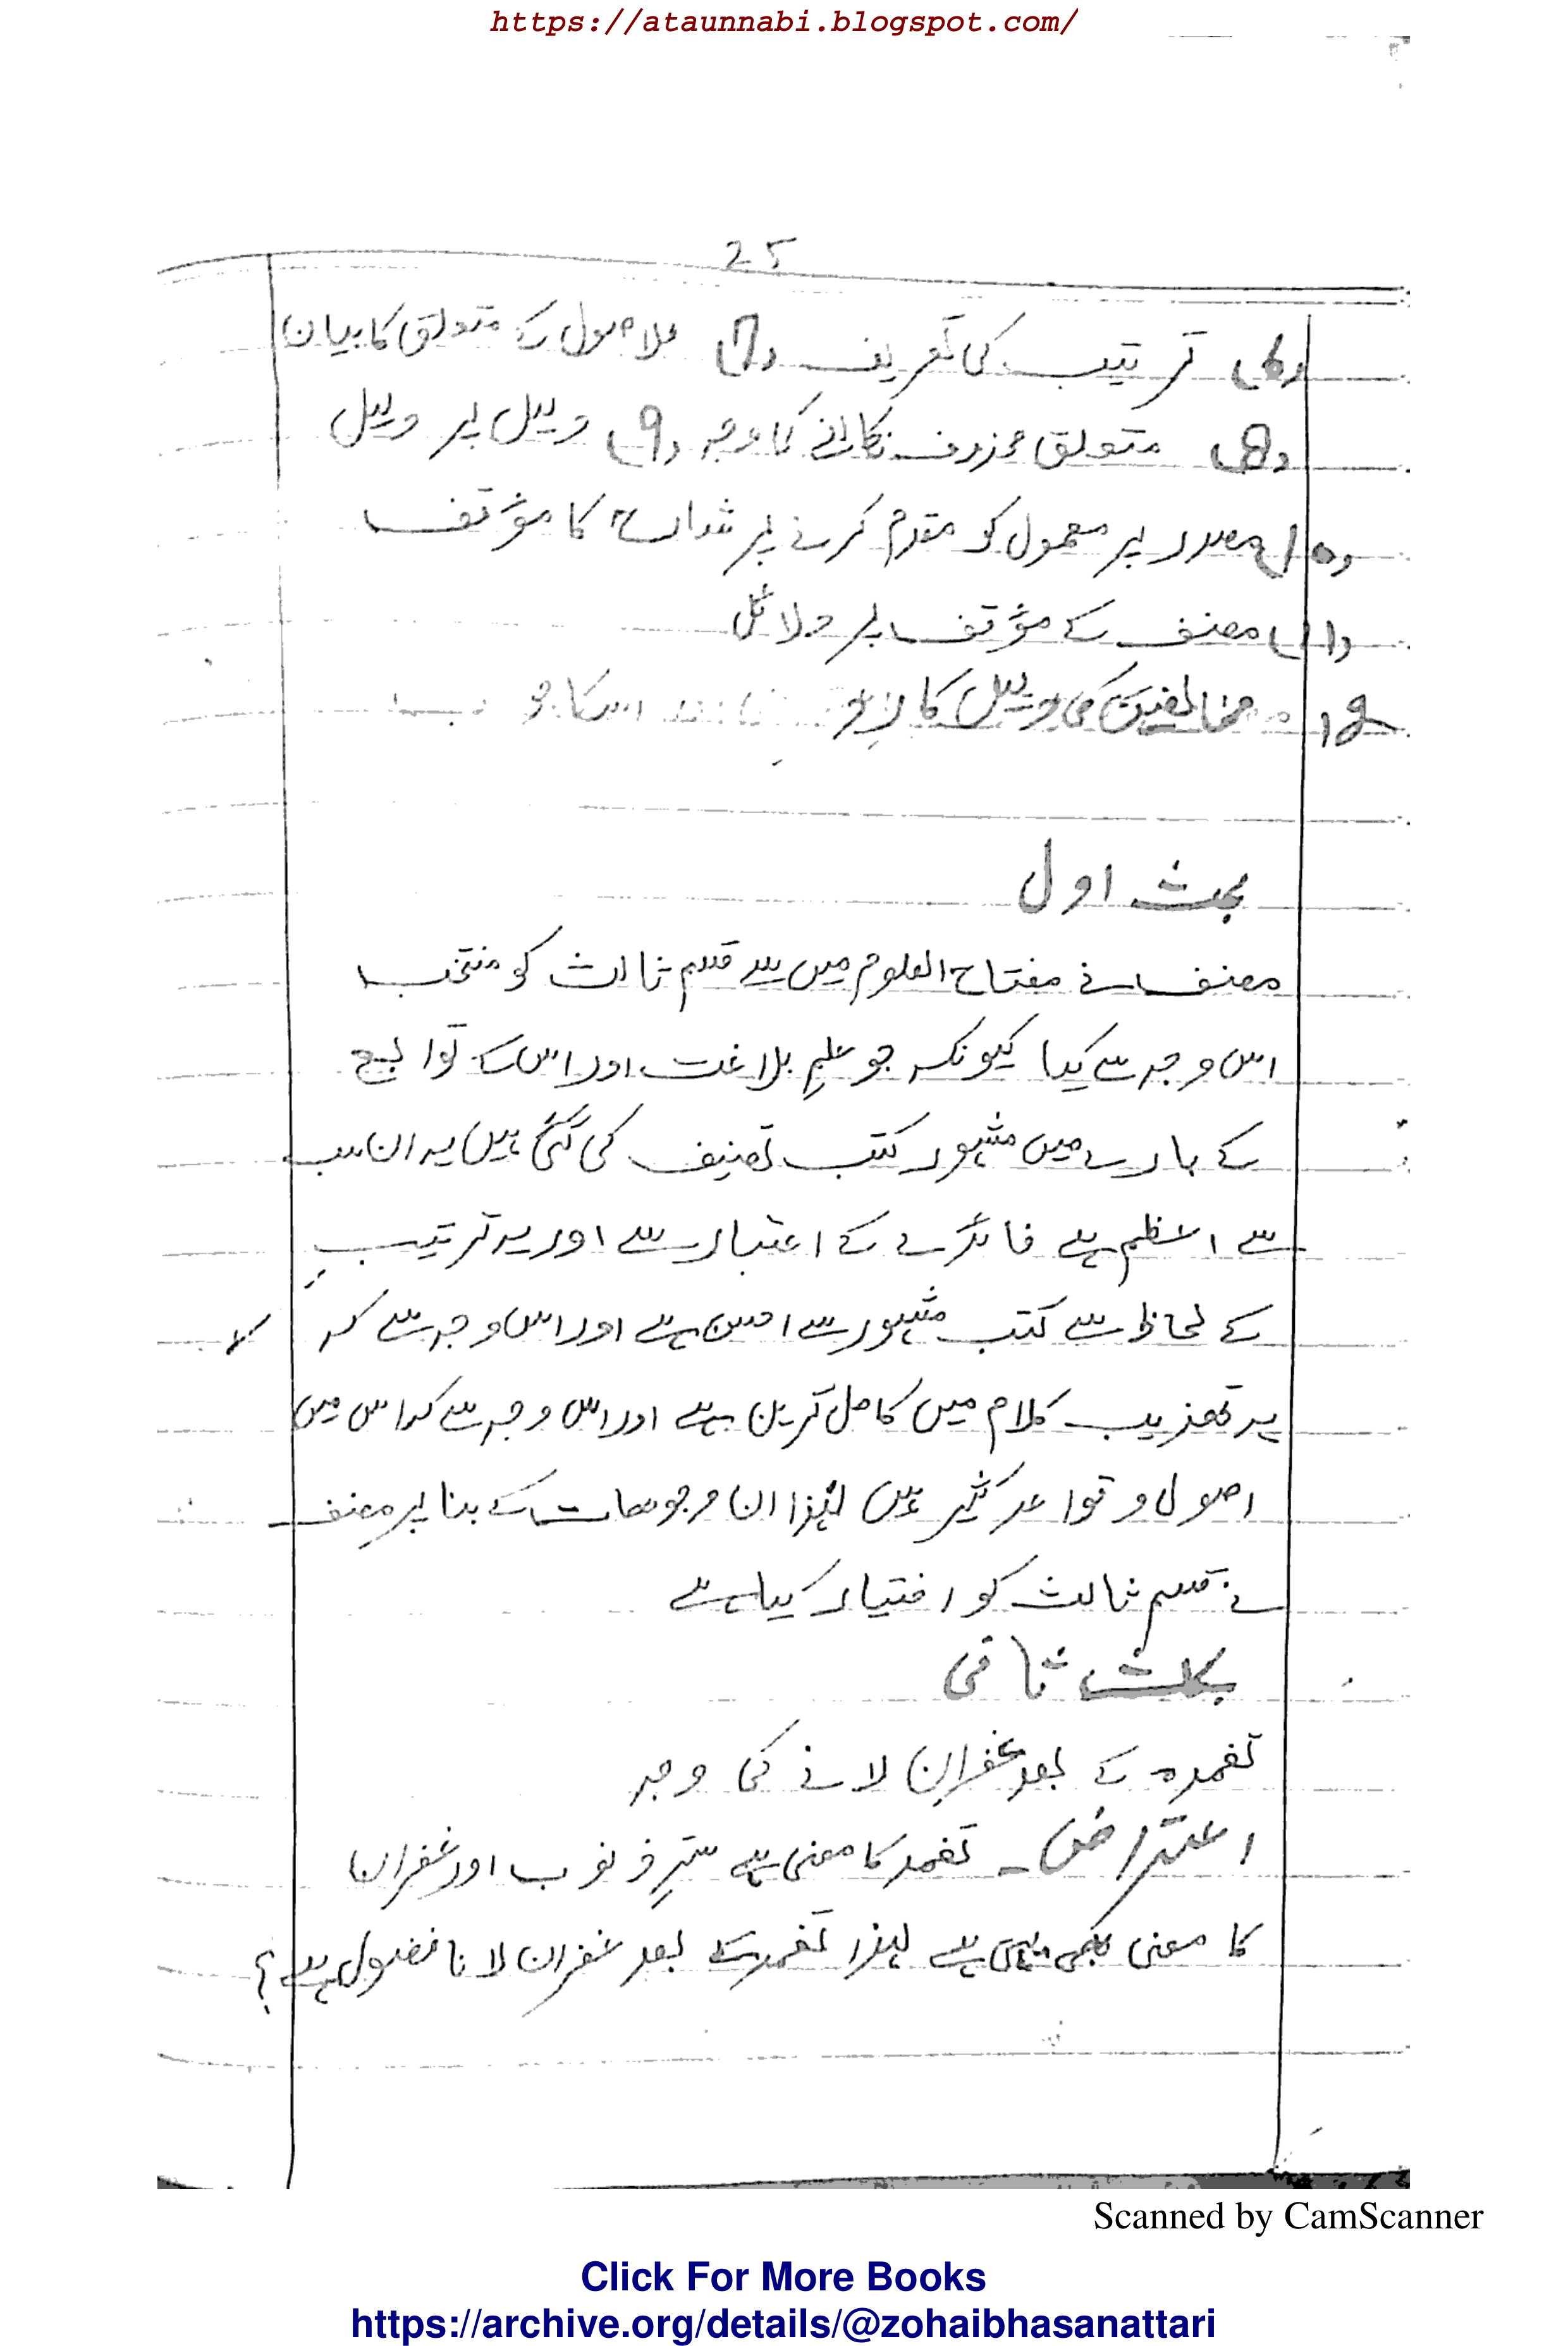 https://ataunnabi.blogspot.com/
25
(6) ترتیب کی تعریف (7) للاصول کے متعلق کا بیان
(8) متعلق محذوف نکالنے کا وجہ (9) دلیل پر دلیل
(10) مصدر پر معمول کو مقدم کرنے پر شارح کا مؤقف
(11) مصنف کے مؤقف پر دلائل
12 مخالفین کی دلیل کا رد اسکا جو
بحث اول
مصنف نے مفتاح العلوم میں سے قسم ثالث کو منتخب
اس وجہ سے کیا کیونکہ جو علمِ بلاغت اور اس کے توابع
کے بارے میں مشہور کتب تصنیف کی گئی ہیں یہ ان سب
سے اعظم ہے فائدے کے اعتبار سے اور یہ ترتیبِ
کے لحاظ سے کتب مشہور سے احسن ہے اور اس وجہ سے کہ
یہ تھذیب کلام میں کامل ترین ہے اور اس وجہ سے کہ اس میں
اصول و قواعد کثیر ہیں لہٰذا ان وجوھات کے بنا پر مصنف
نے قسم ثالث کو اختیار کیا ہے
بحث ثانی
تغمدہ کے بعد غفران لانے کی وجہ
اعتراض۔ تغمد کا معنی ہے سترِ ذنوب اور غفران
کا معنی بھی یہی ہے لہذا تغمد کے بعد غفران لانا فضول ہے؟
Scanned by CamScanner
Click For More Books
https://archive.org/details/@zohaibhasanattari